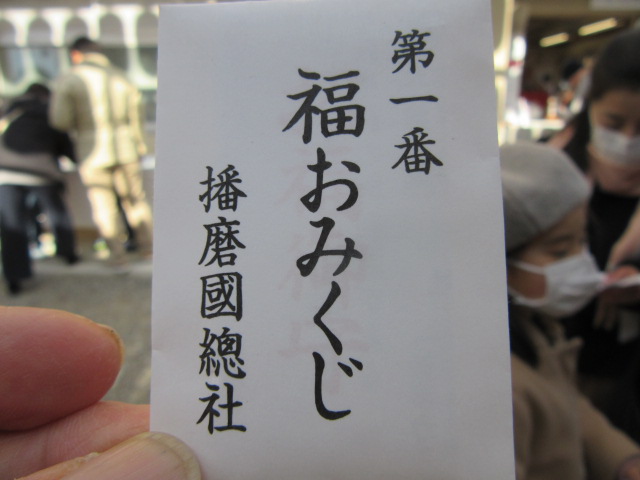 第一番
福おみくじ
播磨國總社